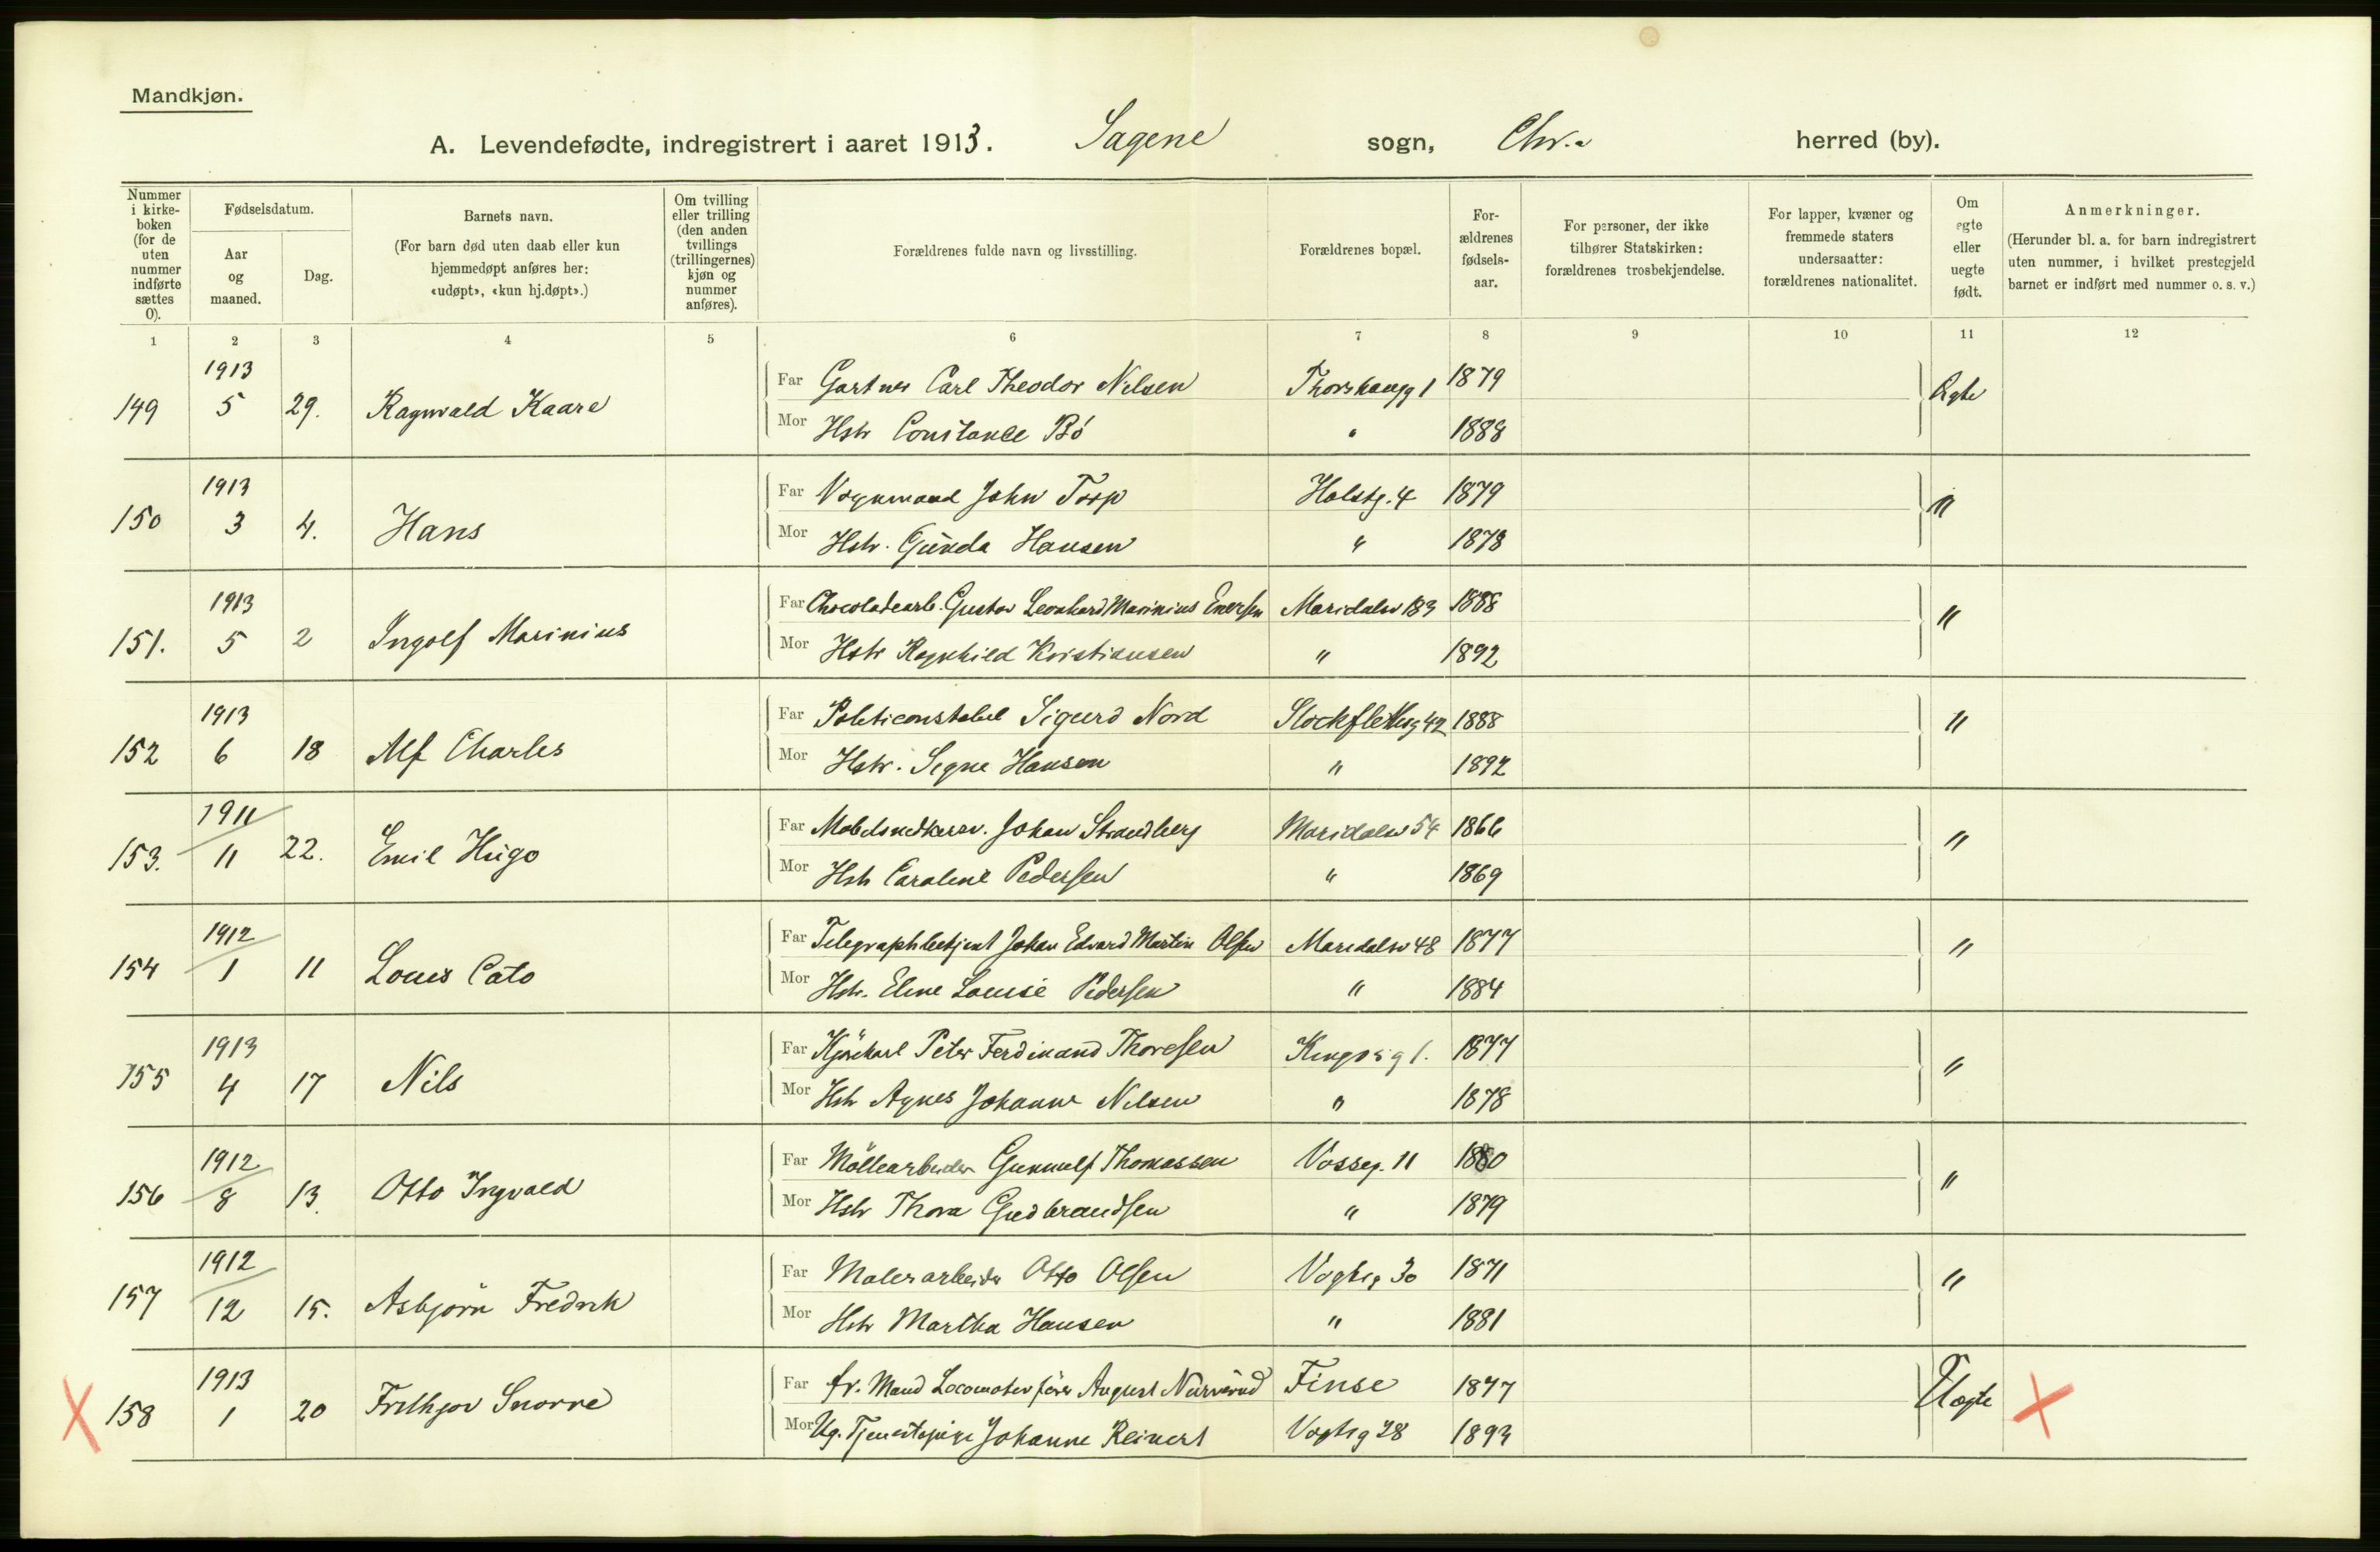 Mandkjøn.
A. Levendefødte, indregistrert i aaret 1913. Sagene sogn, Chr.a herred (by).
Nummer i kirke-boken (for de uten nummer indførte sættes 0).
Fødselsdatum.
Aar og maaned.
Dag.
Barnets navn.
(For barn død uten daab eller kun hjemmedøpt anføres her: «udøpt», «kun hj.døpt».)
Om tvilling eller trilling (den anden tvillings (trillingernes) kjøn og nummer anføres).
Forældrenes fulde navn og livsstilling.
Forældrenes bopæl.
For-ældrenes fødsels-aar.
For personer, der ikke tilhører Statskirken: forældrenes trosbekjendelse.
For lapper, kvæner og fremmede staters undersaatter: forældrenes nationalitet.
Om egte eller uegte født.
Anmerkninger.
(Herunder bl. a. for barn indregistrert uten nummer, i hvilket prestegjeld barnet er indført med nummer o. s. v.)
1 2 3 4 5 6 7 8 9 10 11 12
149 1913 5 29. Ragnvald Kaare Far Gartner Carl Theodor Nilsen Thorshaugg 1 1879 Egte
Mor Hstr Constance Bö " 1888
150 1913 3 4. Hans Far Vognmand John Torp Holstg. 4 1879 "
Mor Hstr. Gunda Hansen " 1878
151. 1913 5 2 Ingolf Marinius Far Chocoladearb. Gustav Leonhard Marinius Enersen Maridalsv 183 1888 "
Mor Hstr Ragnhild Kristiansen " 1892
152 1913 6 18 Alf Charles Far Politiconstabel Sigurd Nord Stockflethsg 42 1888 "
Mor Hstr. Signe Hansen " 1892
153. 1911 11 22. Emil Hugo Far Johan Strandberg Maridalsv 54 1866 "
Mor Hstr Caroline Pedersen " 1869
154 1912 1 11 Louis Cato Far Telegraphbetjent Johan Edvard Martin Olsen Maridalsv 48 1877 "
Mor Hstr. Eline Louise Pedersen " 1884
155 1913 4 17 Nils Far Kjörekarl Peter Ferdinand Thoresen 1. 1877 "
Mor Hstr Agnes Johanne Nilsen " 1878
156 1912 8 13. Otto Ingvald Far Möllearbeider Gunnulf Thomassen Vosseg. 11 1880 "
Mor Hstr Thora Gudbrandsen " 1879
157 1912 12 15. Asbjörn Fredrik Far Malerarbeider Otto Olsen Vogtsg 30 1871 "
Mor Hstr Martha Hansen " 1881
X 158 1913 1 20 Frithjov Snorre Far fr. Mand Locomotivförer August Finse 1877 Uegte X
Mor Ug. Tjenestepige Johanne Reinert Vogtsg 28 1893